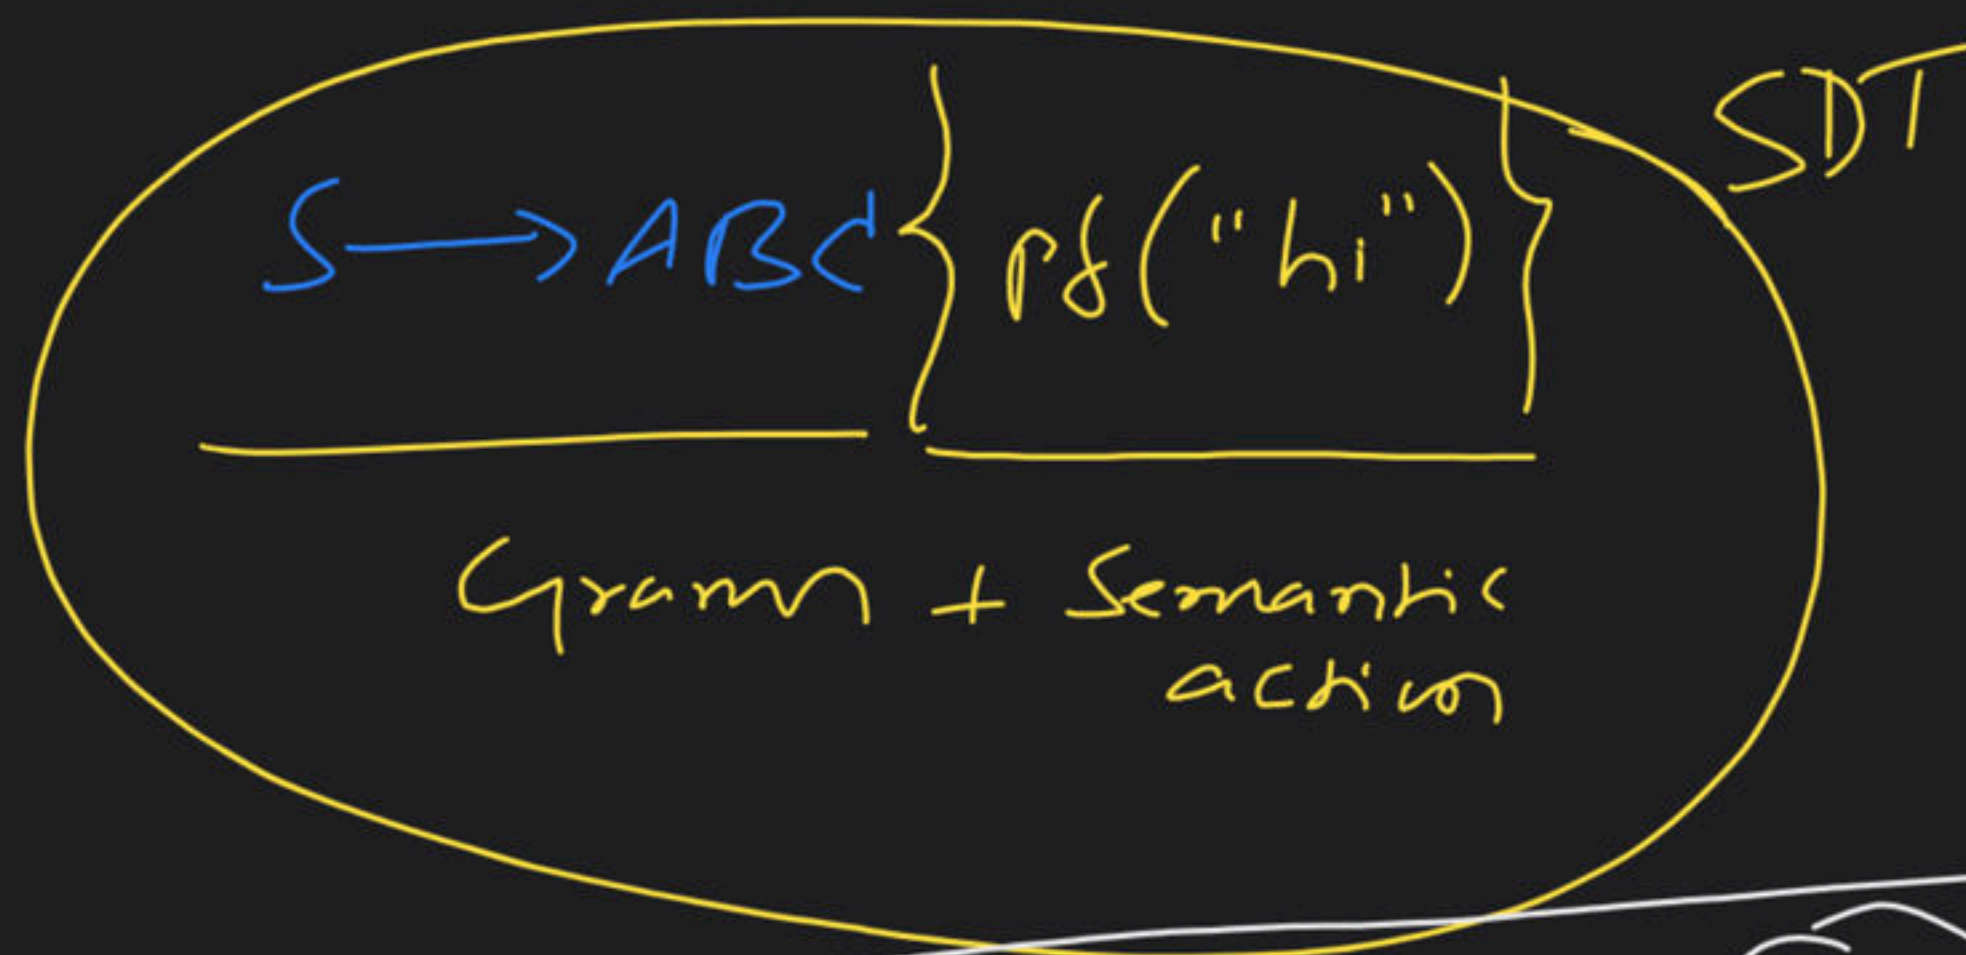 SDT
S → ABC { pf("hi") }
Gramm + Semantic
action